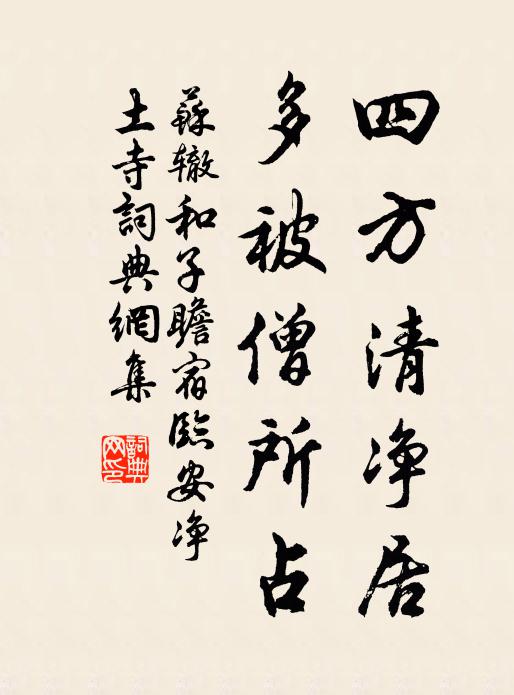 四方清净居
多被僧所占
蘇辙和子瞻宿臨安净
土寺詞典網集
詞典
网印